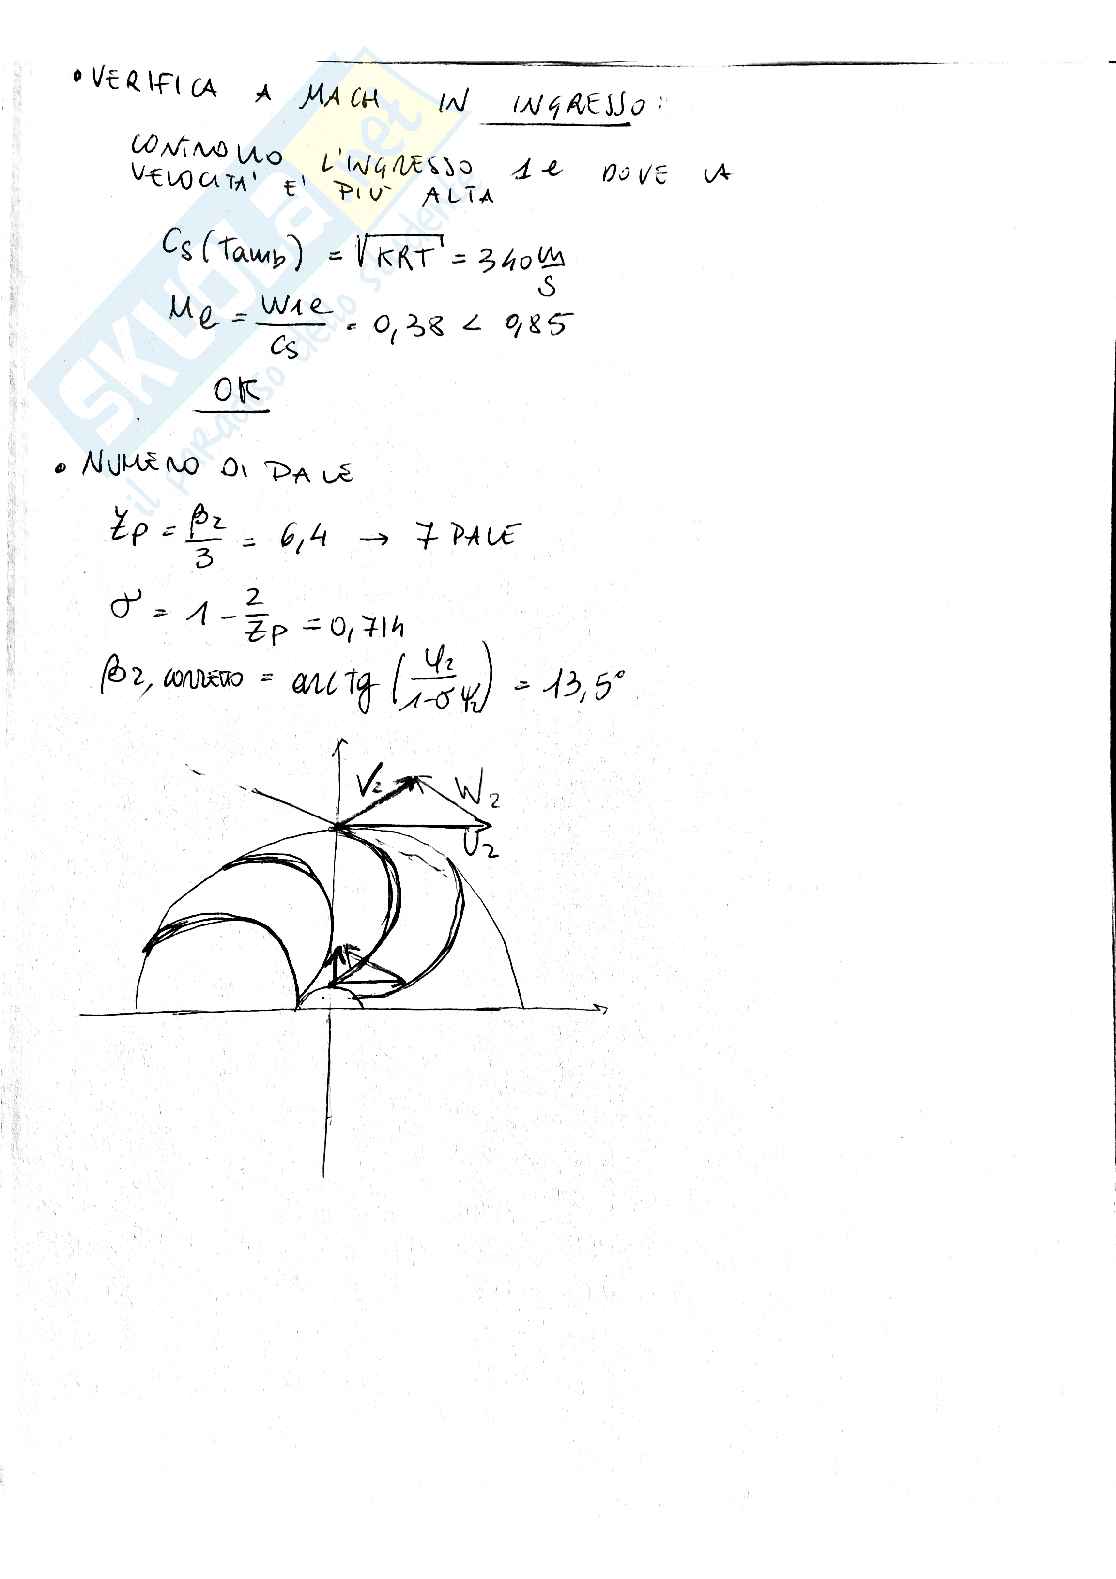 • VERIFICA A MACH IN INGRESSO:
CONTROLLO L'INGRESSO 1e DOVE LA
VELOCITA' E' PIU' ALTA
Cs (Tamb) = √KRT = 340 m/s
Me = W1e/Cs = 0,38 < 0,85
OK
• NUMERO DI PALE
Zp = β2/3 = 6,4 → 7 PALE
σ = 1 - 2/Zp = 0,714
β2, CORRETTO = arctg (φ2/1-σψ2) = 13,5°
V2 W2
U2
SKUOLA.net